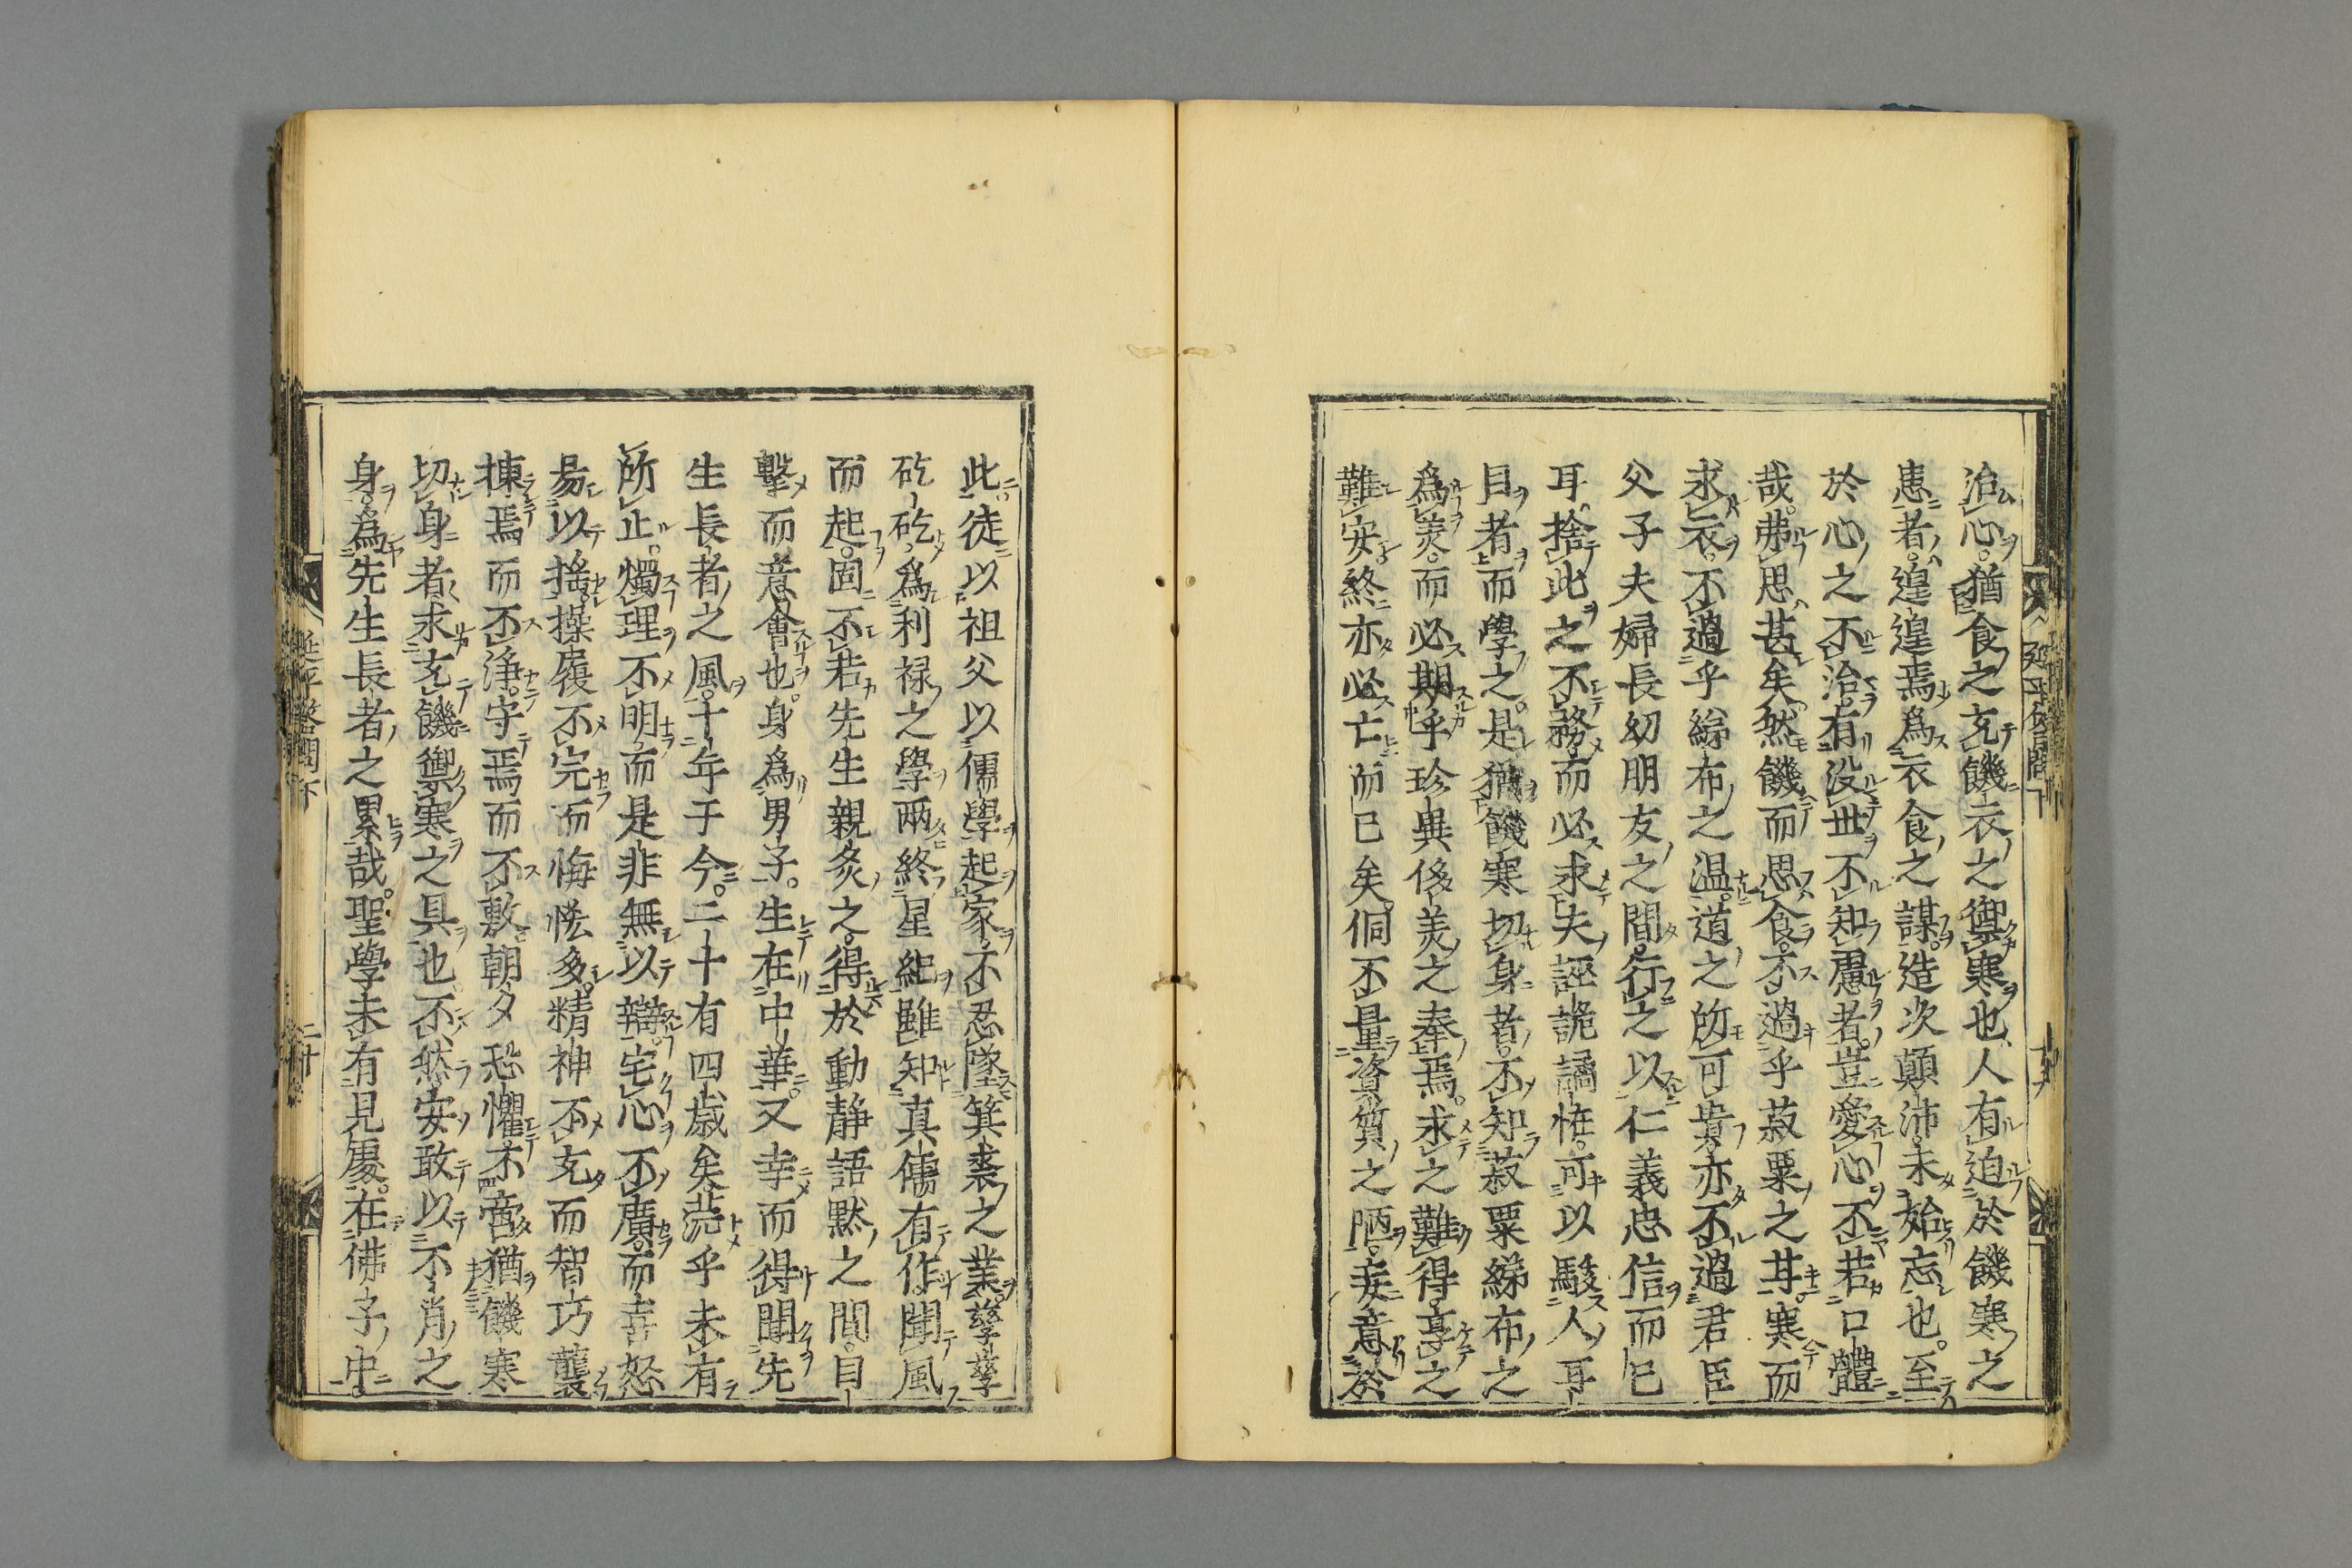 治心猶食之充饑衣之禦寒也人有迫於饑寒之
患者遑遑焉為衣食之謀造次顛沛未始忘也至
於心之不治有没世不知慮者豈愛心不若口體
哉弗思甚矣然饑而思食不過乎菽粟之甘寒而
求衣不過乎綈布之温道之所可貴亦不過君臣
父子夫婦長幼朋友之間行之以仁義忠信而已
耳捨此之不務而必求夫誣詭譎怪可以駭人耳
目者而學之是猶饑寒切身者不知菽粟綈布之
為羙而必期乎珍異侈羙之奉焉求之難得享之
難安終亦必亡而已矣侗不量資質之陋妄意於
此徒以祖父以儒學起家不忍墜箕裘之業孳孳
矻矻為利禄之學兩終星紀雖知真儒有作聞風
而起固不若先生親炙之得於動静語黙之間目
擊而意會也身為男子生在中華又幸而得聞先
生長者之風十年于今二十有四歳矣茫乎未有
所止燭理不明而是非無以辯宅心不廣而喜怒
易以揺操履不完而悔恡多精神不充而智巧襲
揀焉而不浄守焉而不敷朝夕恐懼不啻猶饑寒
切身者求充饑禦寒之具也不然安敢以不肖之
身為先生長者之累哉聖學未有見處在佛子中
延平答問下
延平答問下
二十